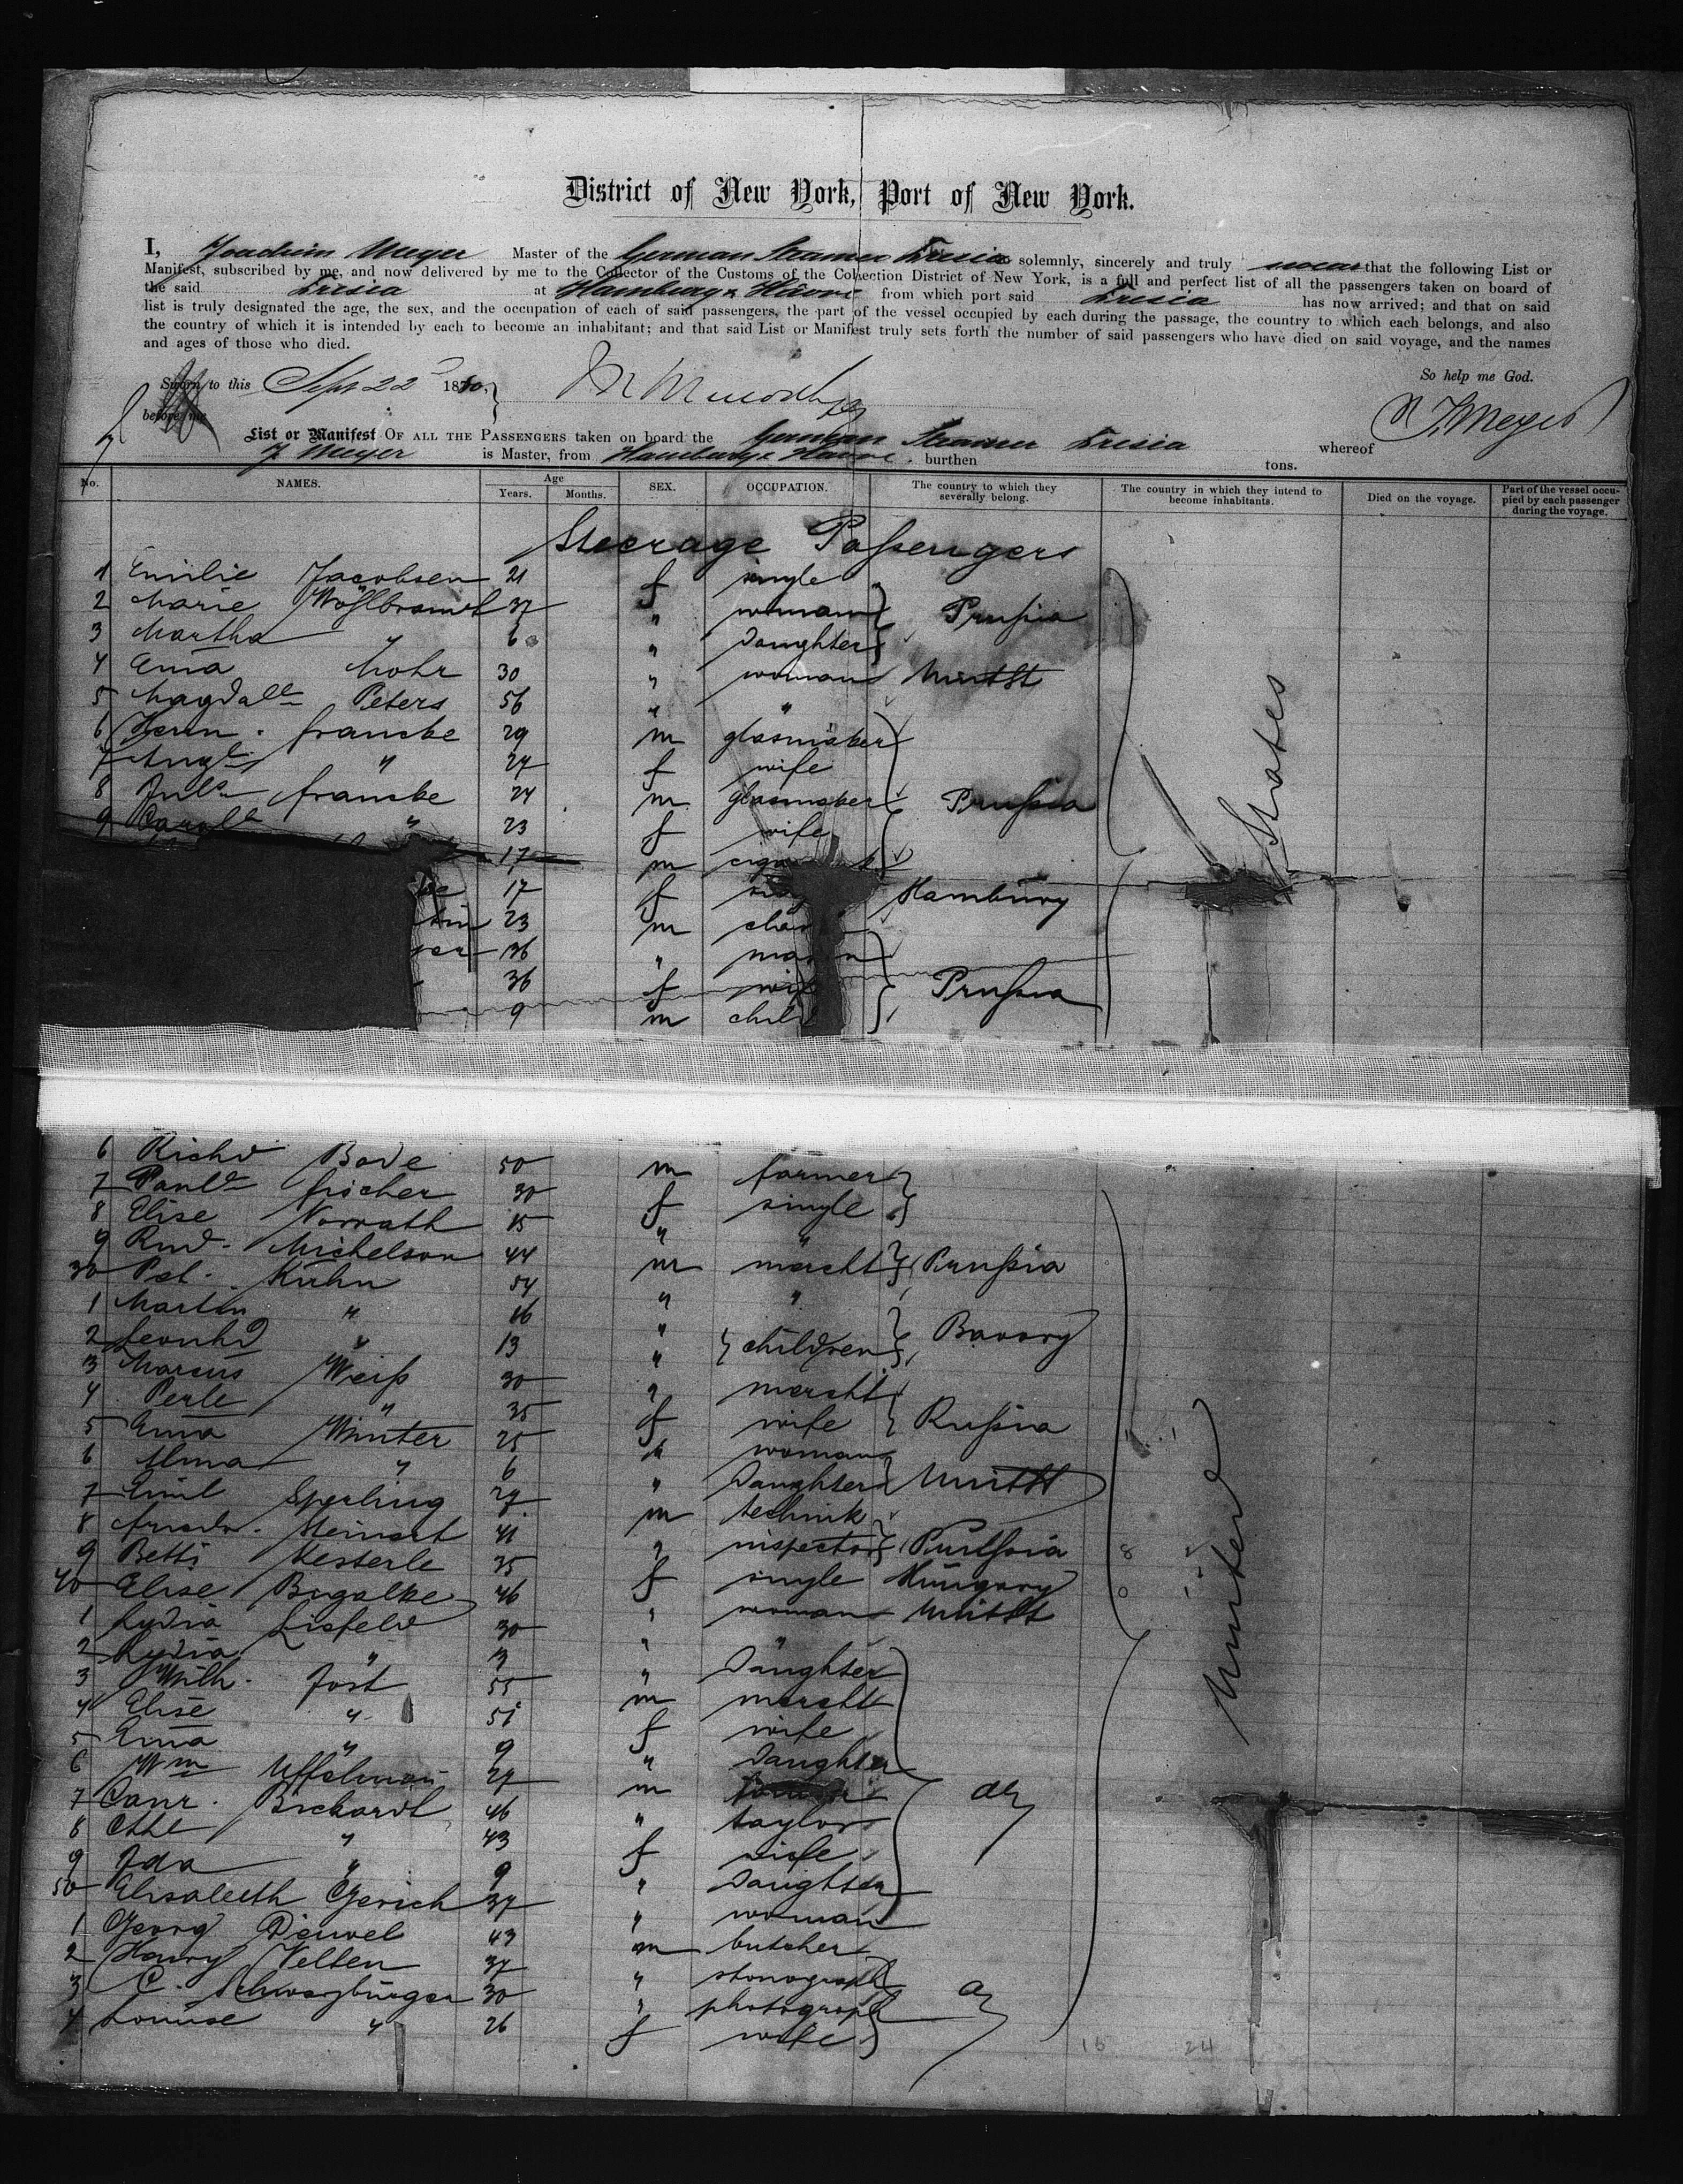 District of New York, Port of New York.
I, Joachim Meyer Master of the German Steamer Frisia solemnly, sincerely and truly swear that the following List or
Manifest, subscribed by me, and now delivered by me to the Collector of the Customs of the Collection District of New York, is a full and perfect list of all the passengers taken on board of
the said Frisia at Hamburg & Havre from which port said Frisia has now arrived; and that on said
list is truly designated the age, the sex, and the occupation of each of said passengers, the part of the vessel occupied by each during the passage, the country to which each belongs, and also
the country of which it is intended by each to become an inhabitant; and that said List or Manifest truly sets forth the number of said passengers who have died on said voyage, and the names
and ages of those who died.
So help me God.
Sworn to this Sept 22 1880,
before me
J. Meyer
List or Manifest OF ALL THE PASSENGERS taken on board the German Steamer Frisia whereof
J Meyer is Master, from Hamburg & Havre. burthen tons.
No. NAMES. Age Years. Months. SEX. OCCUPATION. The country to which they severally belong. The country in which they intend to become inhabitants. Died on the voyage. Part of the vessel occupied by each passenger during the voyage.
Steerage Passengers
1 Emilie Jacobsen 21 f single
2 Marie Wohlbrandt 37 " woman Prussia
3 Martha " 6 " Daughter
4 Ema Mohr 30 " woman Unit St
5 Magdale Peters 56 " "
6 Herm. Francke 29 m glasmaker
7 " 27 f wife
8 Juls Francke 24 m glasmaker Prussia
9 " 23 f wife
17 m
17 f Hamburg
23 m
36 " mason
36 f wife Prussia
9 m child
6 Richd Bode 50 m farmer
7 Paule Fischer 30 f single
8 Elise Norrath 15 " "
9 Rud. Michelson 44 m mercht Prussia
30 Pet. Kuhn 54 " "
1 Martin " 16 "
2 Leonhd " 13 " children Bavary
3 Marcus Weiss 30 " mercht
4 Perle " 35 f wife Russia
5 Ema Winter 25 " woman
6 Alma " 6 " Daughter Unit St
7 Emil Sperling 27 m technik
8 Steinert 41 " inspector Prussia
9 Betti Kesterle 35 f single Hungary
40 Elise Bogalke 46 " woman Unit St
1 Lydia Lisfeld 30 " "
2 Lydia " " Daughter
3 Wilh. Jost 55 m mercht
4 Elise " 51 f wife
5 Ema " 9 " Daughter
6 Wm Uffelman 27 m
7 Conr. Bechardt 46 " taylor
8 Cthe " 43 f wife
9 Ida " 9 " Daughter
50 Elisabeth Gerich 37 " woman
1 Georg Deuvel 43 m butcher
2 Henry Velten 37 " stonograph
3 C. Schwarzburger 30 " photograph
4 Louise " 26 f wife
United States
16 24